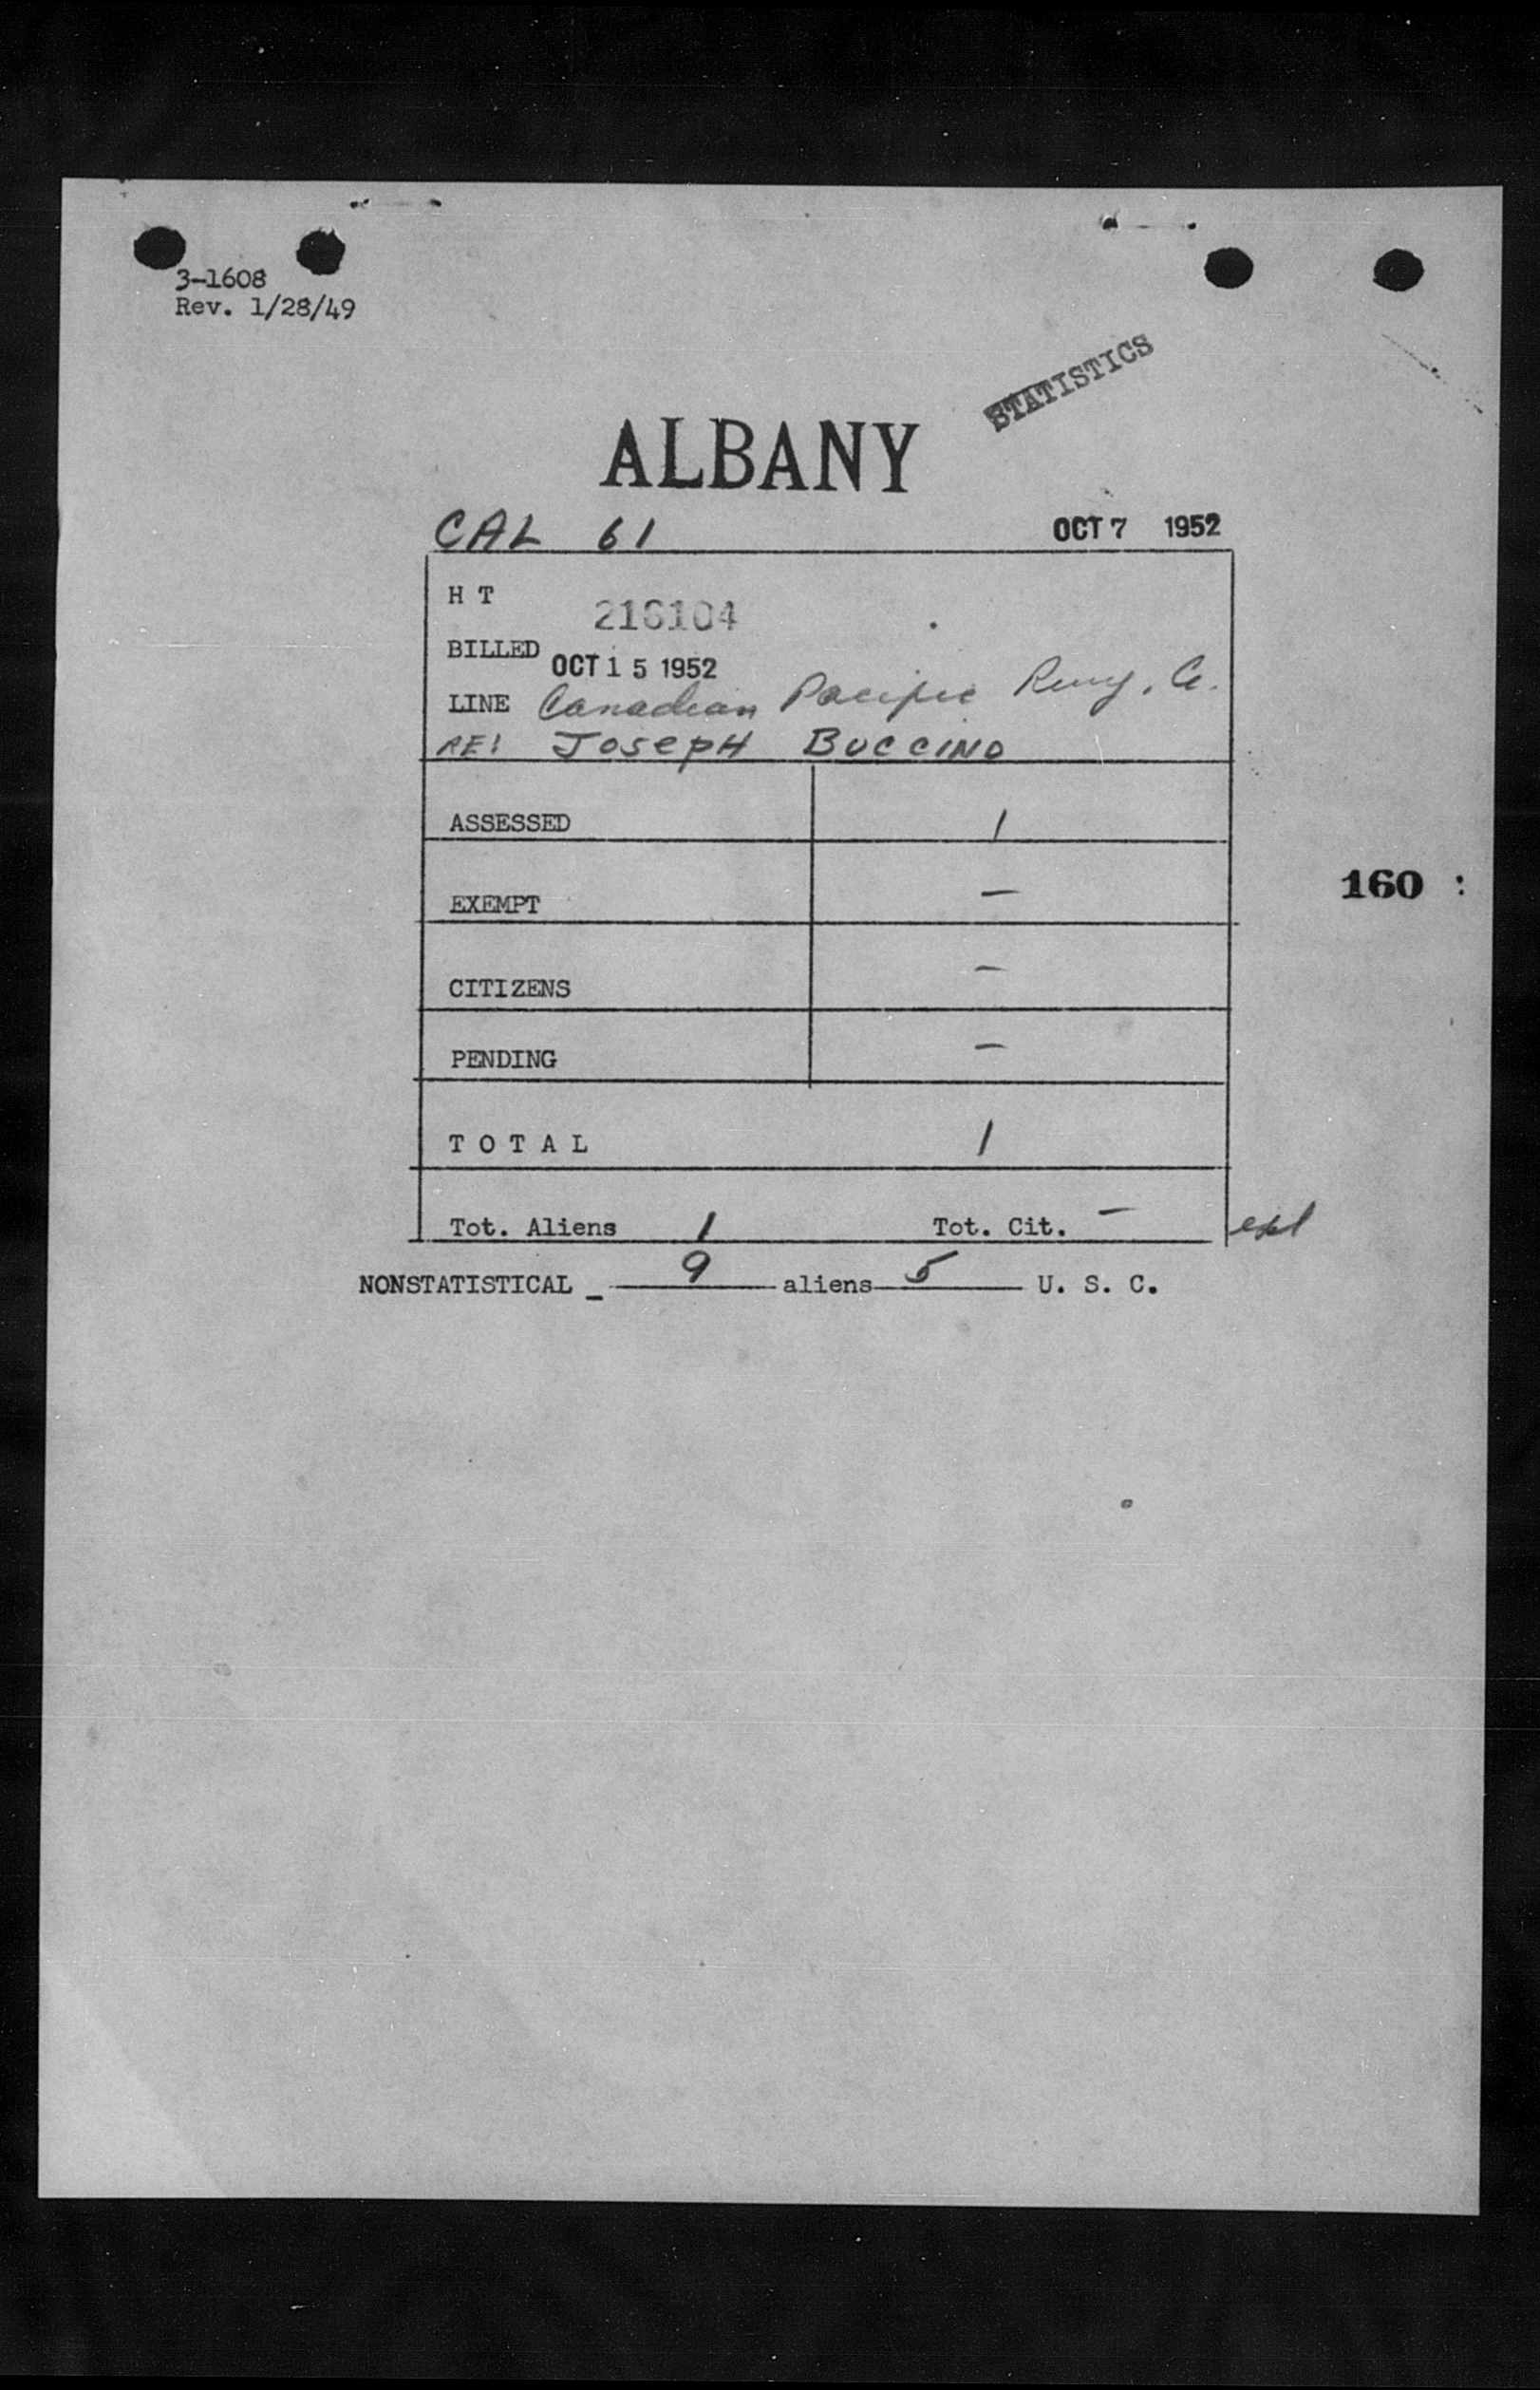 3-1608
Rev. 1/28/49
STATISTICS
ALBANY
CAL 61 OCT 7 1952
H T
216104
BILLED OCT 15 1952
LINE Canadian Pacific Rwy. Co.
RE: JOSEPH BUCCINO
ASSESSED 1
EXEMPT —
160 :
CITIZENS —
PENDING —
T O T A L 1
Tot. Aliens 1 Tot. Cit. —
NONSTATISTICAL _ 9 aliens 5 U. S. C.